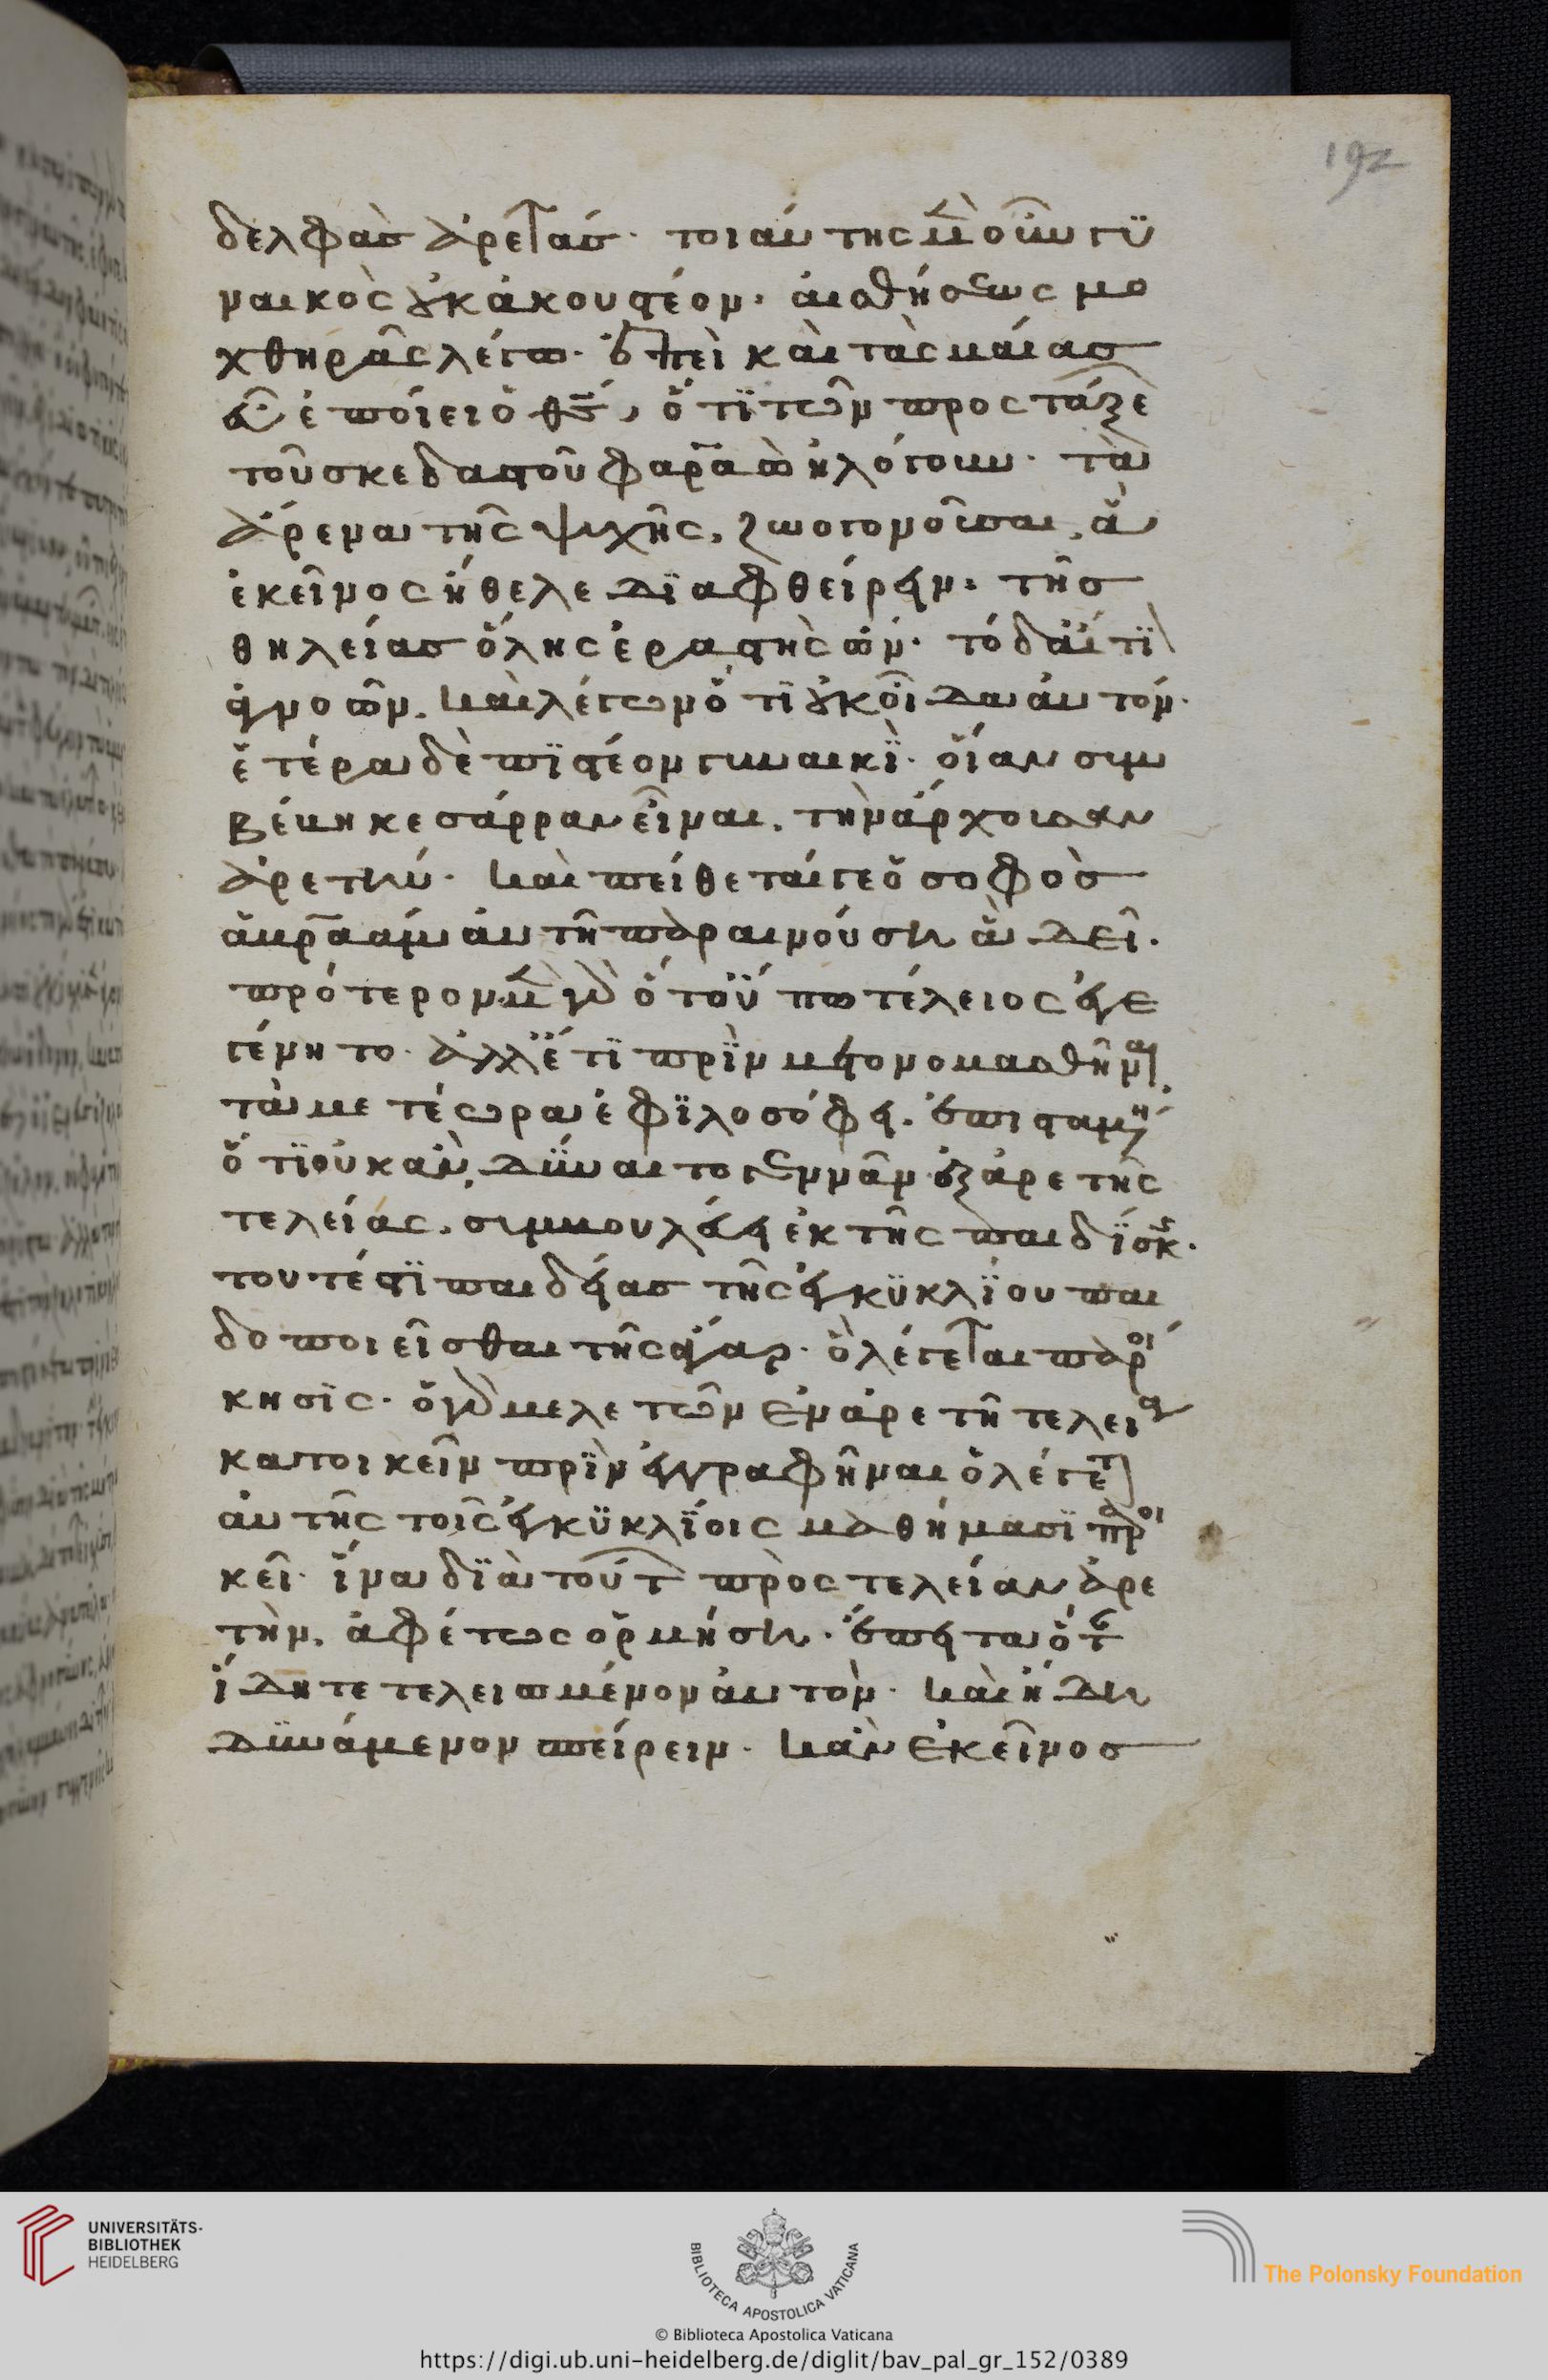 192
δελφὰσ ἀρετάσ. τοιαύτης μὲν οὖν γυ
ναικὸς οὐκ ἀκουστέον. αἰσθήσεως μο
χθηρᾶς λέγω. ἐπεὶ καὶ τὰς μαίασ
εὖ ἐποίει ὁ θς, ὅτι τῶν προστάξε
τοῦ σκεδαστοῦ φαραὼ ἠλόγουν. τὰ
ἄρενα τῆς ψυχῆς, ζωογονοῦσαι, ἃ
ἐκεῖνος ἤθελε διαφθείρειν. τῆσ
θηλείασ ὕλης ἐραστὴς ὤν. τὸ δ' αἴτι
ἀγνοῶν. καὶ λέγων ὅτι οὐκ οἶδα αὐτόν.
ἑτέρα δὲ πιστέον γυναικί. οἵαν συμ
βέβηκε σάρραν εἶναι. τὴν ἄρχουσαν
ἀρετήν. καὶ πείθεταί γε ὁ σοφὸσ
ἁβραὰμ αὐτῇ παραινούσῃ ἃ δεῖ.
πρότερον μὲν γὰρ ὅτ' οὔπω τέλειος ἐγε
γένητο. ἀλλ' ἔτι πρὶν μετονομασθῆναι,
τὰ μετέωρα ἐφιλοσόφει. ἐπισταμένη
ὅτι οὐκ ἂν δύναιτο γεννᾶν ἐξ ἀρετῆς
τελείας. συμβουλεύει ἐκ τῆς παιδίσκης.
τουτέστι παιδείασ τῆς ἐγκυκλίου παι
δοποιεῖσθαι τῆς ἄγαρ. ὃ λέγεται παροί
κησις. ὁ γὰρ μελετῶν ἐν ἀρετῇ τελείᾳ
κατοικεῖν πρὶν ἐγγραφῆναι ὃ λέγεται
αὐτῆς τοῖς ἐγκυκλίοις μαθήμασι παροι
κεῖ. ἵνα διὰ τούτων πρὸς τελείαν ἀρε
τὴν, ἀφέτως ὁρμήσῃ. ἔπειτα ὅταν
ἴδῃ τετελειωμένον αὐτὸν. καὶ ἤδη
δυνάμενον σπείρειν. κἂν ἐκεῖνοσ
UNIVERSITÄTS-
BIBLIOTHEK
HEIDELBERG
BIBLIOTECA APOSTOLICA VATICANA
The Polonsky Foundation
© Biblioteca Apostolica Vaticana
https://digi.ub.uni-heidelberg.de/diglit/bav_pal_gr_152/0389